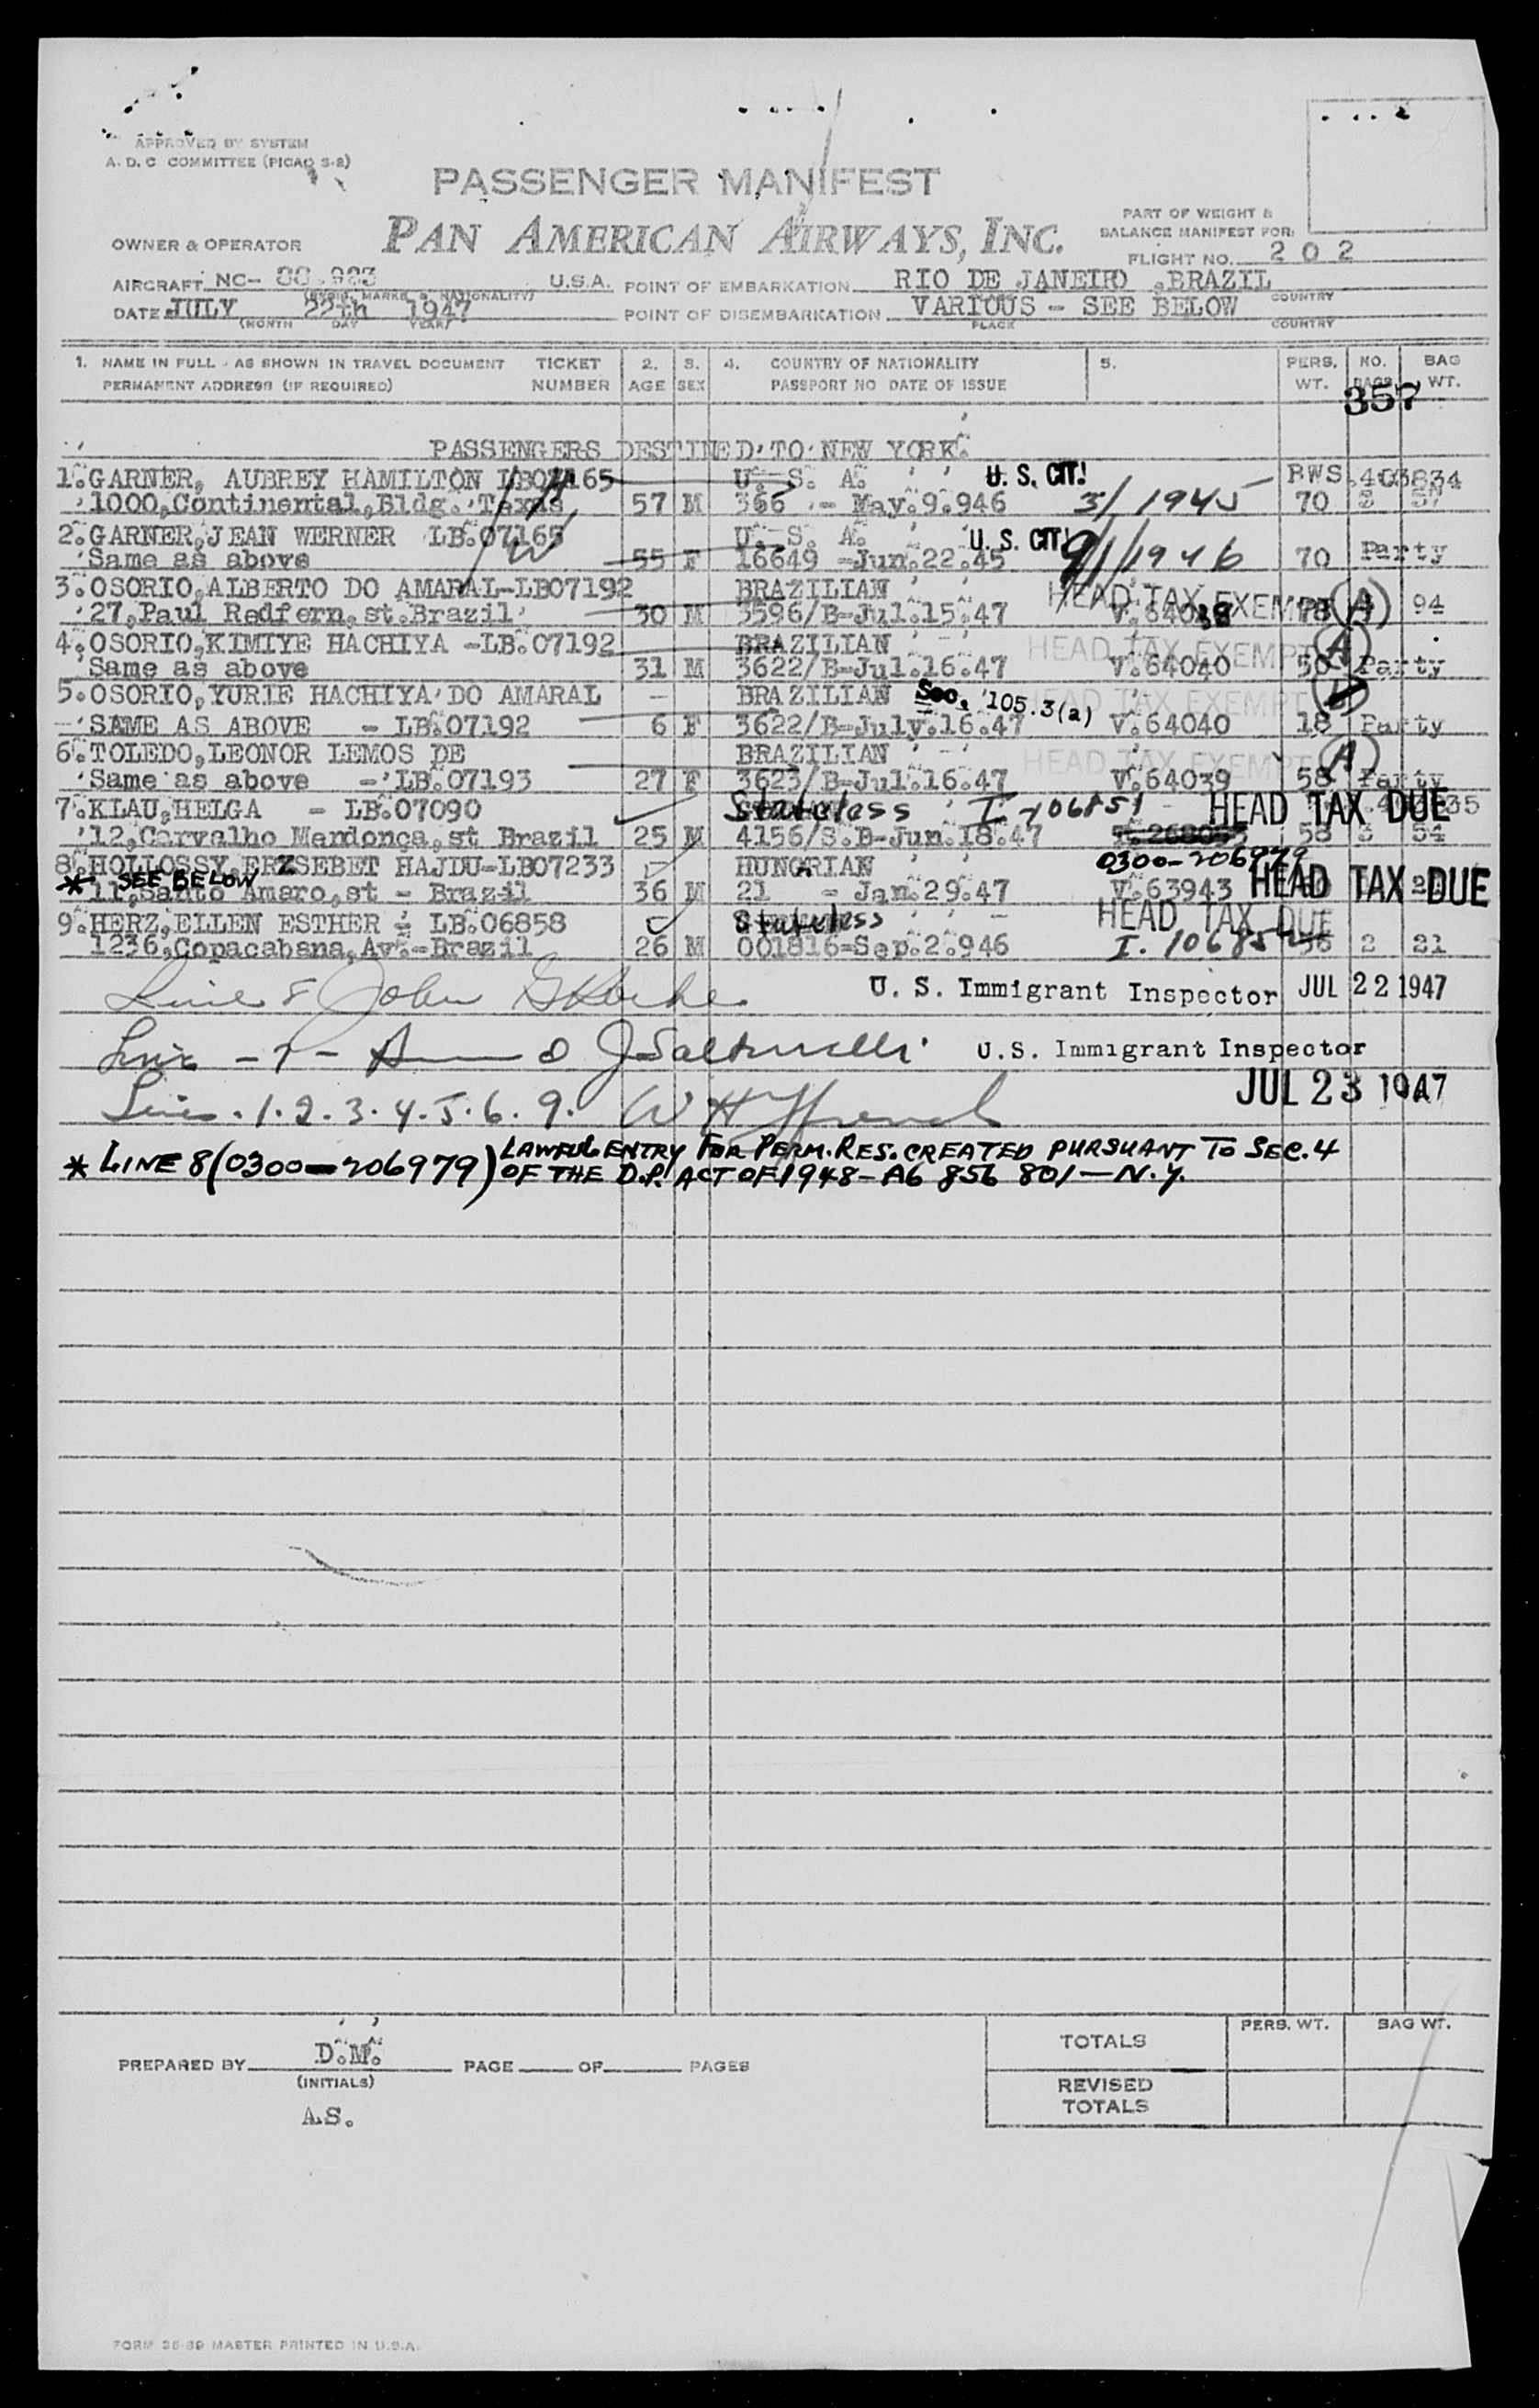 APPROVED BY SYSTEM
A. D. C COMMITTEE (PICAO S-2)
PASSENGER MANIFEST
PAN AMERICAN AIRWAYS, INC.
PART OF WEIGHT &
BALANCE MANIFEST FOR:
OWNER & OPERATOR
FLIGHT NO. 202
AIRCRAFT NC- 88.923 U.S.A. POINT OF EMBARKATION RIO DE JANEIRO .BRAZIL
COUNTRY
DATE JULY 22th 1947 POINT OF DISEMBARKATION VARIOUS - SEE BELOW
(MONTH DAY YEAR) PLACE COUNTRY
1. NAME IN FULL - AS SHOWN IN TRAVEL DOCUMENT TICKET 2. 3. 4. COUNTRY OF NATIONALITY 5. PERS. NO. BAG
PERMANENT ADDRESS (IF REQUIRED) NUMBER AGE SEX PASSPORT NO DATE OF ISSUE WT. BAGS WT.
357
PASSENGERS DESTINED TO NEW YORK.
1. GARNER, AUBREY HAMILTON LB07165 U. S. A. U. S. CIT! BWS.403834
1000,Continental,Bldg. Texas 57 M 366 - May.9.946 3/1945 70 3 57
2. GARNER,JEAN WERNER LB.07165 U. S. A. U. S. CIT!
Same as above 55 F 16649 -Jun.22.45 9/1/1946 70 Party
3. OSORIO,ALBERTO DO AMARAL-LB07192 BRAZILIAN HEAD TAX EXEMPT (A)
27,Paul Redfern,st.Brazil 30 M 3596/B-Jul.15.47 V.64038 78 94
4. OSORIO,KIMIYE HACHIYA -LB.07192 BRAZILIAN HEAD TAX EXEMPT (A)
Same as above 31 M 3622/B-Jul.16.47 V.64040 50 Party
5. OSORIO,YURIE HACHIYA DO AMARAL - BRAZILIAN Sec. 105.3(a) HEAD TAX EXEMPT
SAME AS ABOVE - LB.07192 6 F 3622/B-July.16.47 V.64040 18 Party
6. TOLEDO,LEONOR LEMOS DE BRAZILIAN HEAD TAX EXEMPT (A)
Same as above - LB.07193 27 F 3623/B-Jul.16.47 V.64039 58 Party
7. KLAU,HELGA - LB.07090 Stateless I-706851 HEAD TAX DUE
12,Carvalho Mendonça,st Brazil 25 M 4156/S.B-Jun.18.47 58 3 54
8. HOLLOSSY,ERZSEBET HAJDU-LB07233 HUNGRIAN 0300-206979
* SEE BELOW
11,Santo Amaro,st - Brazil 36 M 21 - Jan.29.47 V.63943 HEAD TAX DUE
9. HERZ,ELLEN ESTHER - LB.06858 Stateless HEAD TAX DUE
1236,Copacabana,Av.-Brazil 26 M 001816-Sep.2.946 56 2 21
Line 8 John U. S. Immigrant Inspector JUL 22 1947
Line - 7 - U.S. Immigrant Inspector
Lines. 1. 2. 3. 4. 5. 6. 9. W H JUL 23 1947
* LINE 8 (0300-206979) LAWFUL ENTRY FOR PERM. RES. CREATED PURSUANT TO SEC. 4
OF THE D.P. ACT OF 1948 - A6 856 801 - N.Y.
PERS. WT. BAG WT.
TOTALS
PREPARED BY D.M. PAGE OF PAGES
(INITIALS)
REVISED
TOTALS
A.S.
FORM 36-39 MASTER PRINTED IN U.S.A.